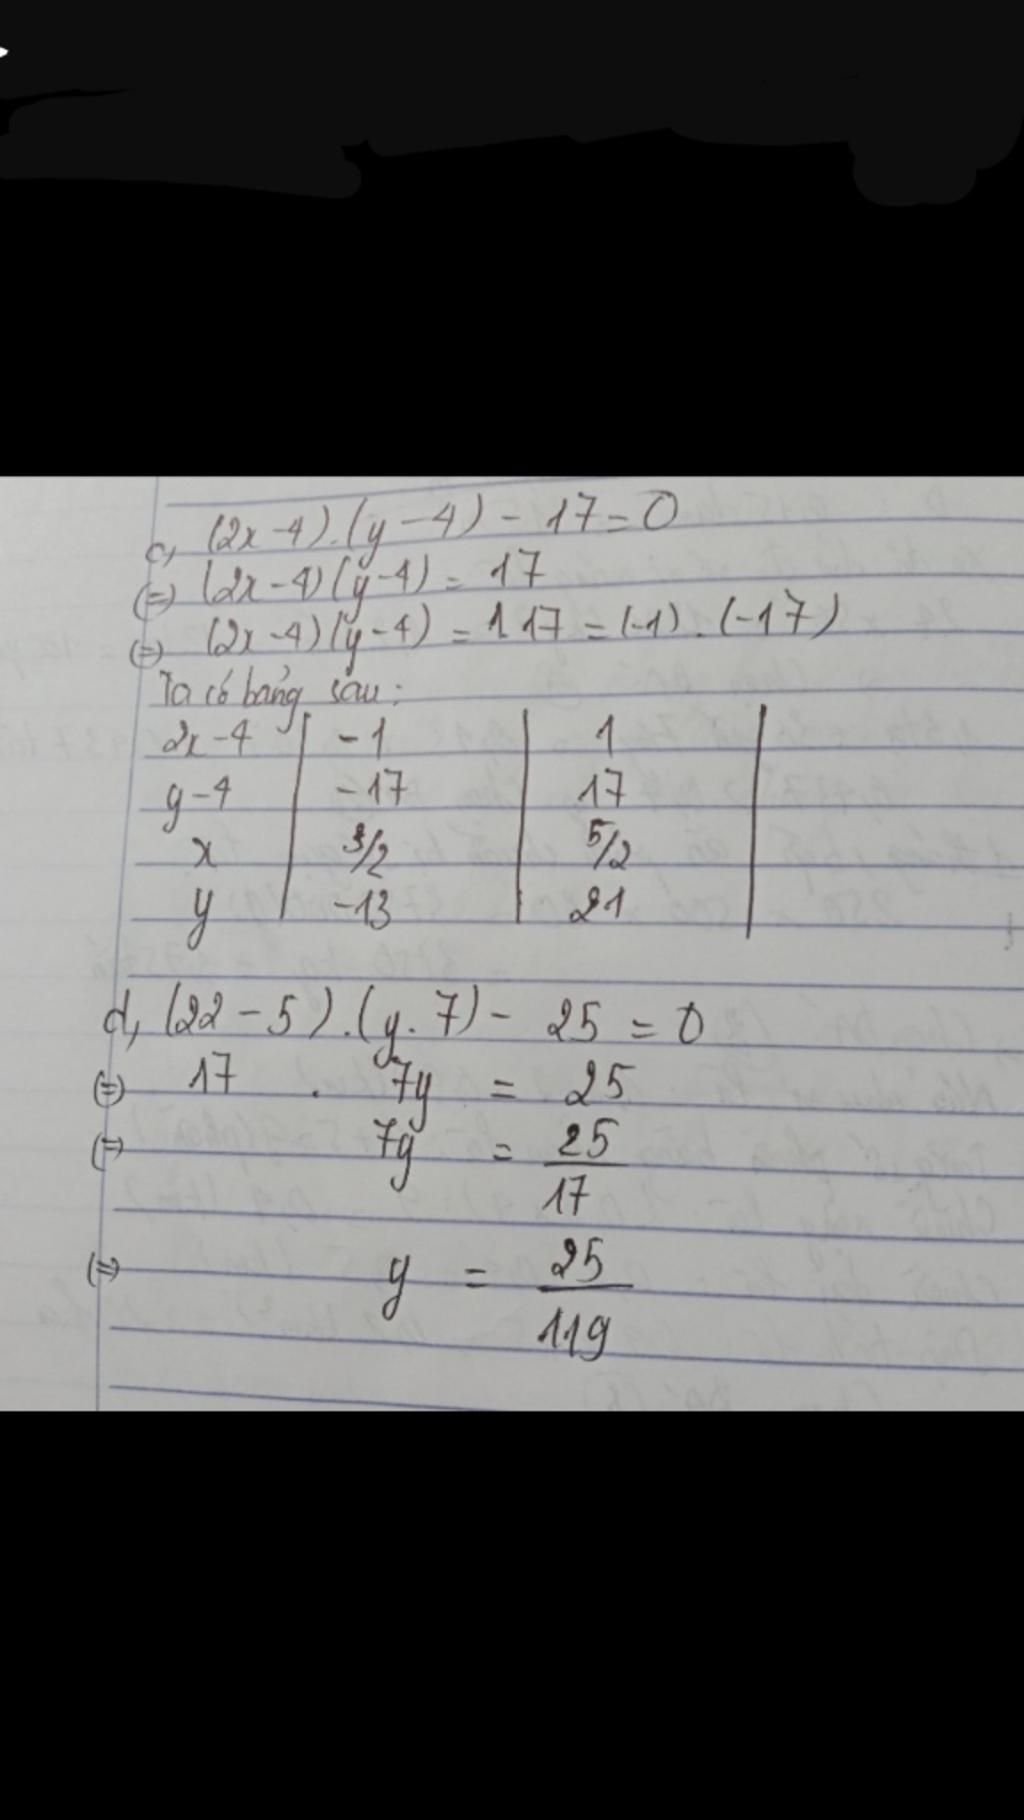 c, (2x-4).(y-4) - 17 = 0
(=) (2x-4)(y-4) = 17
(=) (2x-4)(y-4) = 1 17 = (-1).(-17)
Ta có bảng sau:
2x-4 | -1 | 1 |
y-4 | -17 | 17 |
x | 3/2 | 5/2 |
y | -13 | 21 |
d, (22-5).(y.7) - 25 = 0
(=) 17 . 7y = 25
(=) 7y = 25/17
(=) y = 25/119